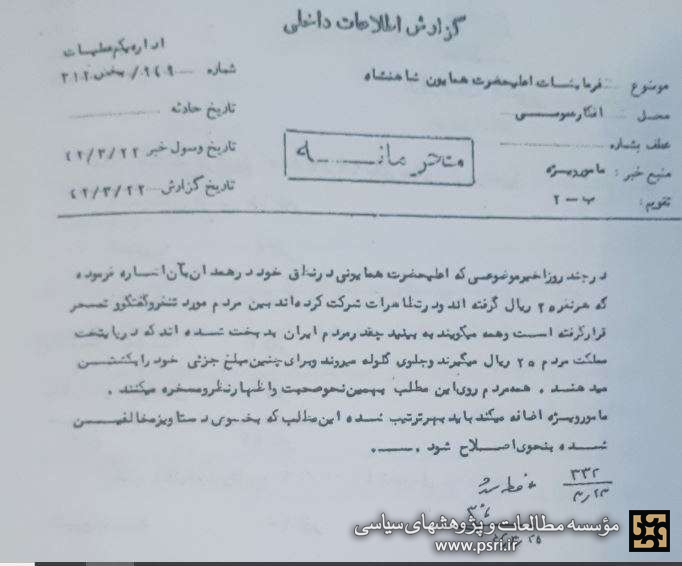 گزارش اطلاعات داخلی
اداره یکم عملیات
شماره ۹۴۹/ بخش ۳۱۲
موضوع : فرمایشات اعلیحضرت همایون شاهنشاه
تاریخ حادثه
محل : افکار عمومی
عطف بشماره
تاریخ وصول خبر ۴۲/۳/۲۲
منبع خبر : مامور ویژه
محرمانه
تاریخ گزارش ۴۲/۳/۲۲
تقویم : ب - ۲
در چند روز اخیر موضوعی که اعلیحضرت همایونی در نطق خود در همدان بآن اشاره فرموده
که هر نفر ۲۵ ریال گرفته اند و در تظاهرات شرکت کرده اند بین مردم مورد تنفر و گفتگو و تمسخر
قرار گرفته است و همه میگویند به بینید چقدر مردم ایران بدبخت شده اند که در پایتخت
مملکت مردم ۲۵ ریال میگیرند و جلوی گلوله میروند و برای چنین مبلغ جزئی خود را بکشتن
میدهند . همه مردم روی این مطلب بهمین نحو صحبت و اظهار نظر و مسخره میکنند .
مامور ویژه اضافه میکند باید بهر ترتیب شده این مطلب که بخصوص دستاویز مخالفین
شده بنحوی اصلاح شود .
۳۳۲
۲۳/۳
مؤسسه مطالعات و پژوهشهای سیاسی
www.psri.ir